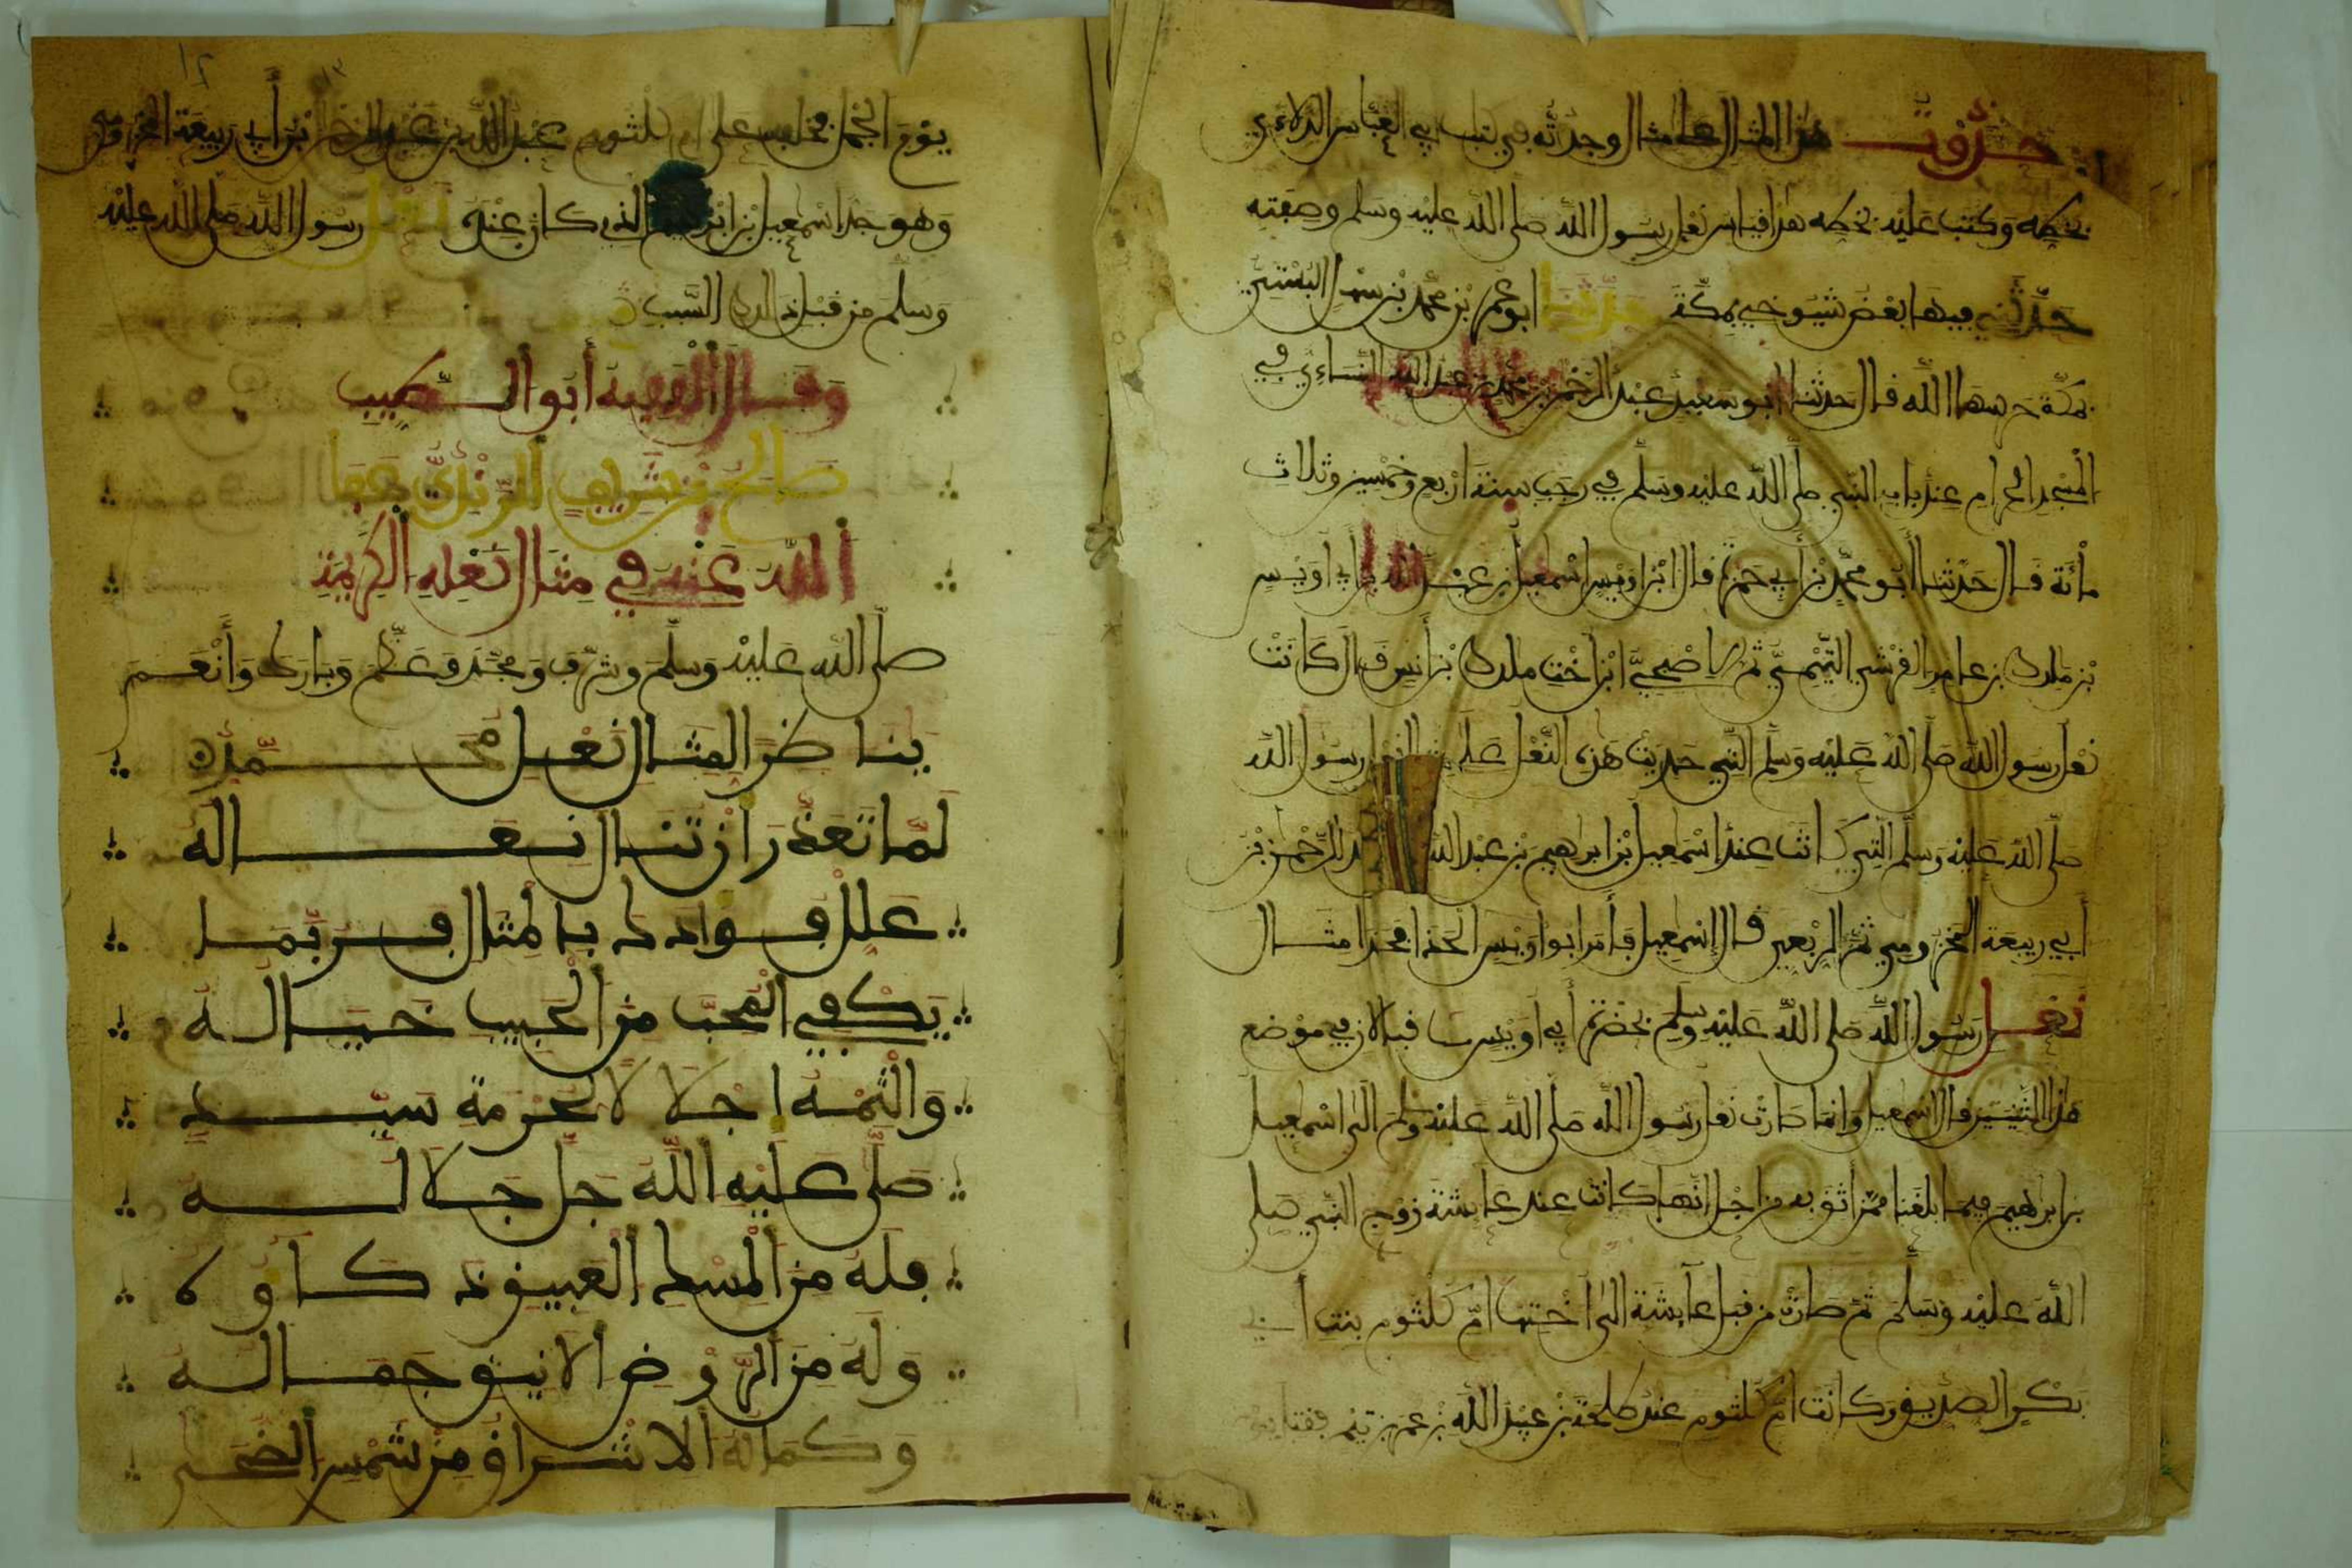 حذوت هذا المثال على مثال وجدته في كتاب ابي العباس الدلاءي
بخطه وكتب عليه بخطه هذا قياس نعل رسول الله صلى الله عليه وسلم وصفته
حدثني فيها بعض شيوخي بمكة حدثنا ابو عمر بن محمد بن سهل البستي
بمكة حرسها الله قال حدثنا ابو سعيد عبد الرحمن بن محمد بن عبد الله النساءي في
المسجد الحرام عند باب النبي صلى الله عليه وسلم في رجب سنة اربع وخمسين وثلاث
مائة قال حدثنا أبو محمد بن أبي حمزة قال ابن اويس اسمعيل بن عبد الله بن أبي اويس
بن ملك بن عامر القرشي التيمي ثم الاصبحي ابن اخت ملك بن أنس قال كانت
نعل رسول الله صلى الله عليه وسلم التي حذيت هذه النعل على رسول الله
صلى الله عليه وسلم التي كانت عند اسمعيل بن ابراهيم بن عبد الله الرحمن بن
أبي ربيعة المخزومي ثم قال إسمعيل فأمر ابو اويس الحذا فحذا مثال
نعل رسول الله صلى الله عليه وسلم بحضرة أبي اويس قبالان في موضع
هذا قال اسمعيل وانما صارت نعل رسول الله صلى الله عليه وسلم الى اسمعيل
بن ابراهيم فيما بلغنا ممن أثق به من اجل انها كانت عند عايشة زوج النبي صلى
الله عليه وسلم ثم صارت من قبل عايشة الى اختها ام كلثوم بنت أبي
بكر الصديق وكانت ام كلثوم عند طلحة بن عبيد الله فقتل
يوم الجمل فخلف على ام كلثوم عبد الله بن عبد الرحمن بن أبي ربيعة المخزومي
وهو جد اسمعيل بن ابراهيم الذي كان عنده نعل رسول الله صلى الله عليه
وسلم من قبل ذلك السبب
وقال الفقيه أبو الطيب
صالح بن شريف الرندي عفا
الله عنه في مثال نعله الكريمة
صلى الله عليه وسلم وشرف ومجد وعظم وبارك وأنعم
محمد
لما تعذر أن تنال نعاله
علل فوادك بالمثال فربما
يكفي المحب من الحبيب خياله
والثمه اجلالا لحرمة سيد
صلى عليه الله جل جلاله
فله من المسك العبيق
وله من الروض الانيق جماله
وكماله الاشراق من شمس الضحى